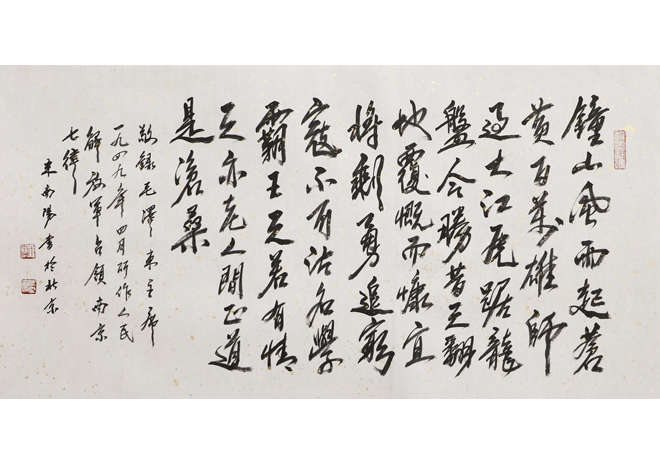 鐘山風雨起蒼
黃百萬雄師
過大江虎踞龍
盤今勝昔天翻
地覆慨而慷宜
將剩勇追窮
寇不可沽名學
霸王天若有情
天亦老人間正道
是滄桑
敬錄毛澤東主席
一九四九年四月所作人民
解放軍占領南京
七律
米南陽書於北京